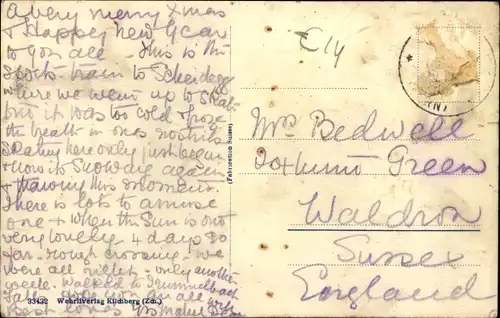 A very merry Xmas
& Happy new Year
to you all This is the
sports train to Scheidegg
where we went up to Skate
but it was too cold & froze
the breath in ones nostrils
Skating here only just begun
& now its Snowing again
& thawing this moment.
There is lots to amuse
one & when the Sun is out
very lovely 4 days so
far. rough crossing. we
were all right. only another
week. Walked to Trummelbach
Falls
best
£14
Mrs Bedwell
Green
Waldron
Sussex
England
(Fabrication Suisse)
33432 Wehrliverlag Kilchberg (Zch.)